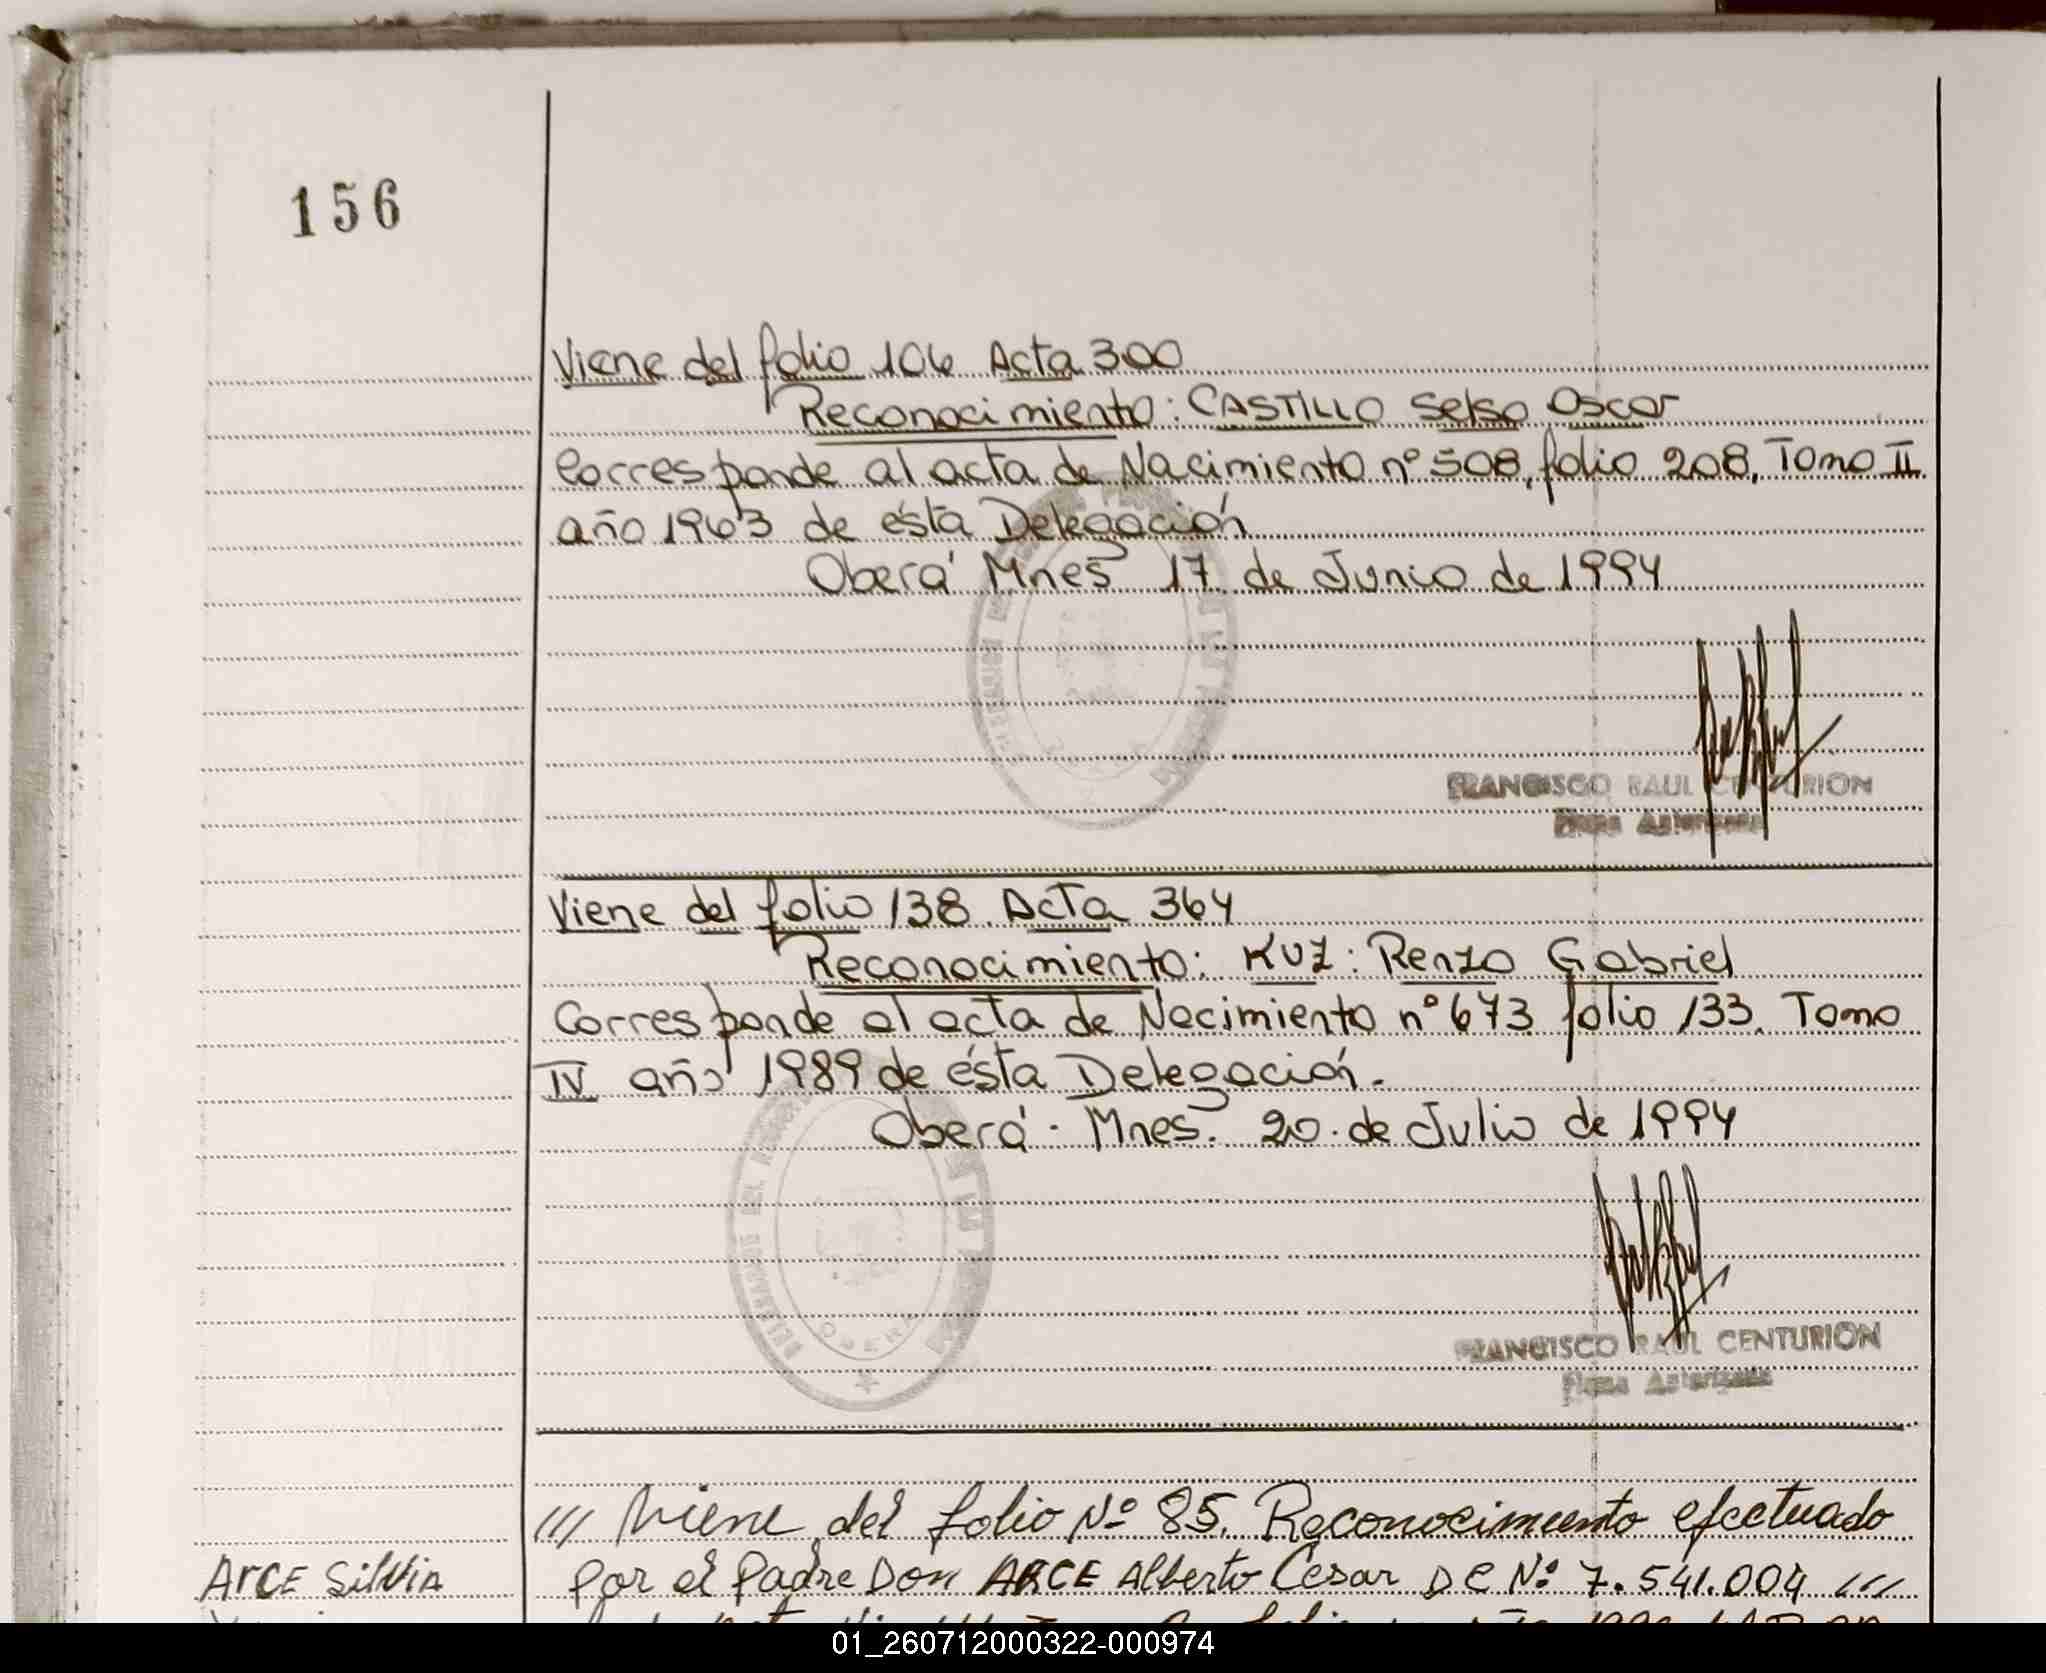 156
Viene del folio 106 Acta 300
Reconocimiento: CASTILLO Selso Oscar
Corresponde al acta de Nacimiento nº 508, folio 208, Tomo II
año 1963 de ésta Delegación
Oberá Mnes 17 de Junio de 1994
FRANCISCO RAUL CENTURION
Firma Autorizada
Viene del folio 138. Acta 364
Reconocimiento: KUZ: Renzo Gabriel
Corresponde al acta de Nacimiento nº 673 folio 133. Tomo
IV año 1989 de ésta Delegación.
Oberá. Mnes. 20. de Julio de 1994
OBERA
FRANCISCO RAUL CENTURION
Firma Autorizada
/// Viene del folio Nº 85. Reconocimiento efectuado
ARCE SilviA
por el Padre Don ARCE Alberto Cesar D E Nº 7.541.004 ///
01_260712000322-000974